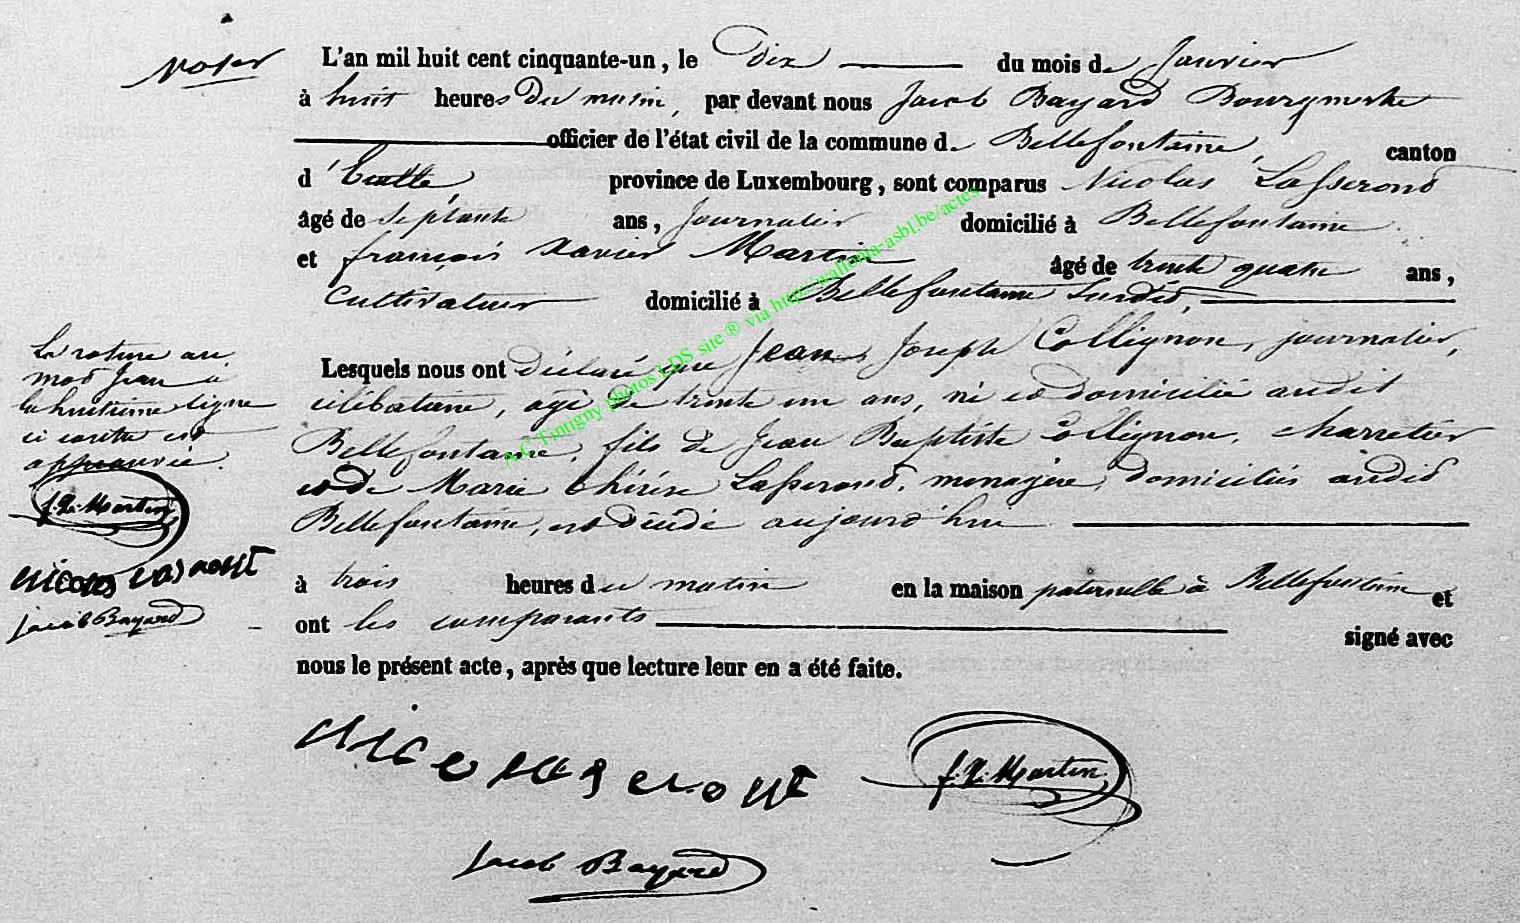 L'an mil huit cent cinquante-un, le dix du mois de Janvier
à huit heures du matin, par devant nous Jacob Bayard Bourgmestre
officier de l'état civil de la commune de Bellefontaine, canton
d'Etalle, province de Luxembourg, sont comparus Nicolas Lasserond
âgé de septante ans, journalier domicilié à Bellefontaine
et françois Xavier Martin âgé de trente quatre ans,
cultivateur domicilié à Bellefontaine susdit,
Lesquels nous ont déclaré que Jean Joseph Collignon, journalier,
célibataire, agé de trente un ans, né et domicilié audit
Bellefontaine, fils de Jean Baptiste Collignon, charretier
et de Marie thérèse Lasserond, menagère, domiciliés audit
Bellefontaine, est décédé aujourd'hui
à trois heures du matin en la maison paternelle à Bellefontaine et
ont les comparants signé avec
nous le présent acte, après que lecture leur en a été faite.
La rature au
mot Jean à
la huitième ligne
ci contre est
approuvée.
f. X. Martin
Jacob Bayard
f. X. Martin
Jacob Bayard
A.C Tintigny photos LDS site ® via http://wallonia-asbl.be/actes